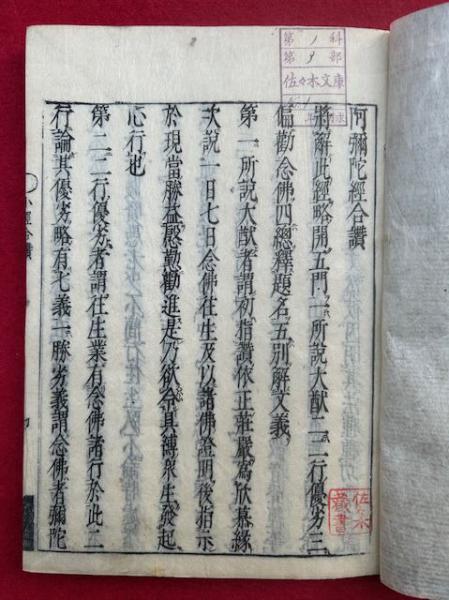 阿彌陀經合讚
將解此經略開五門一所說大猷二二行優劣三
偏勸念佛四總釋題名五別解文義
第一所說大猷者謂初指讚依正莊嚴爲欣慕緣
次說一日七日念佛往生及以諸佛證明後指示
於現當勝益慇懃勸進是乃欲令具縛衆生發起
心行也
第二二行優劣者謂往生業有念佛諸行於此二
行論其優劣略有七義一勝劣義謂念佛者彌陀
小經合讚
第 科
第 部
佐々木文庫
佐々木
藏書